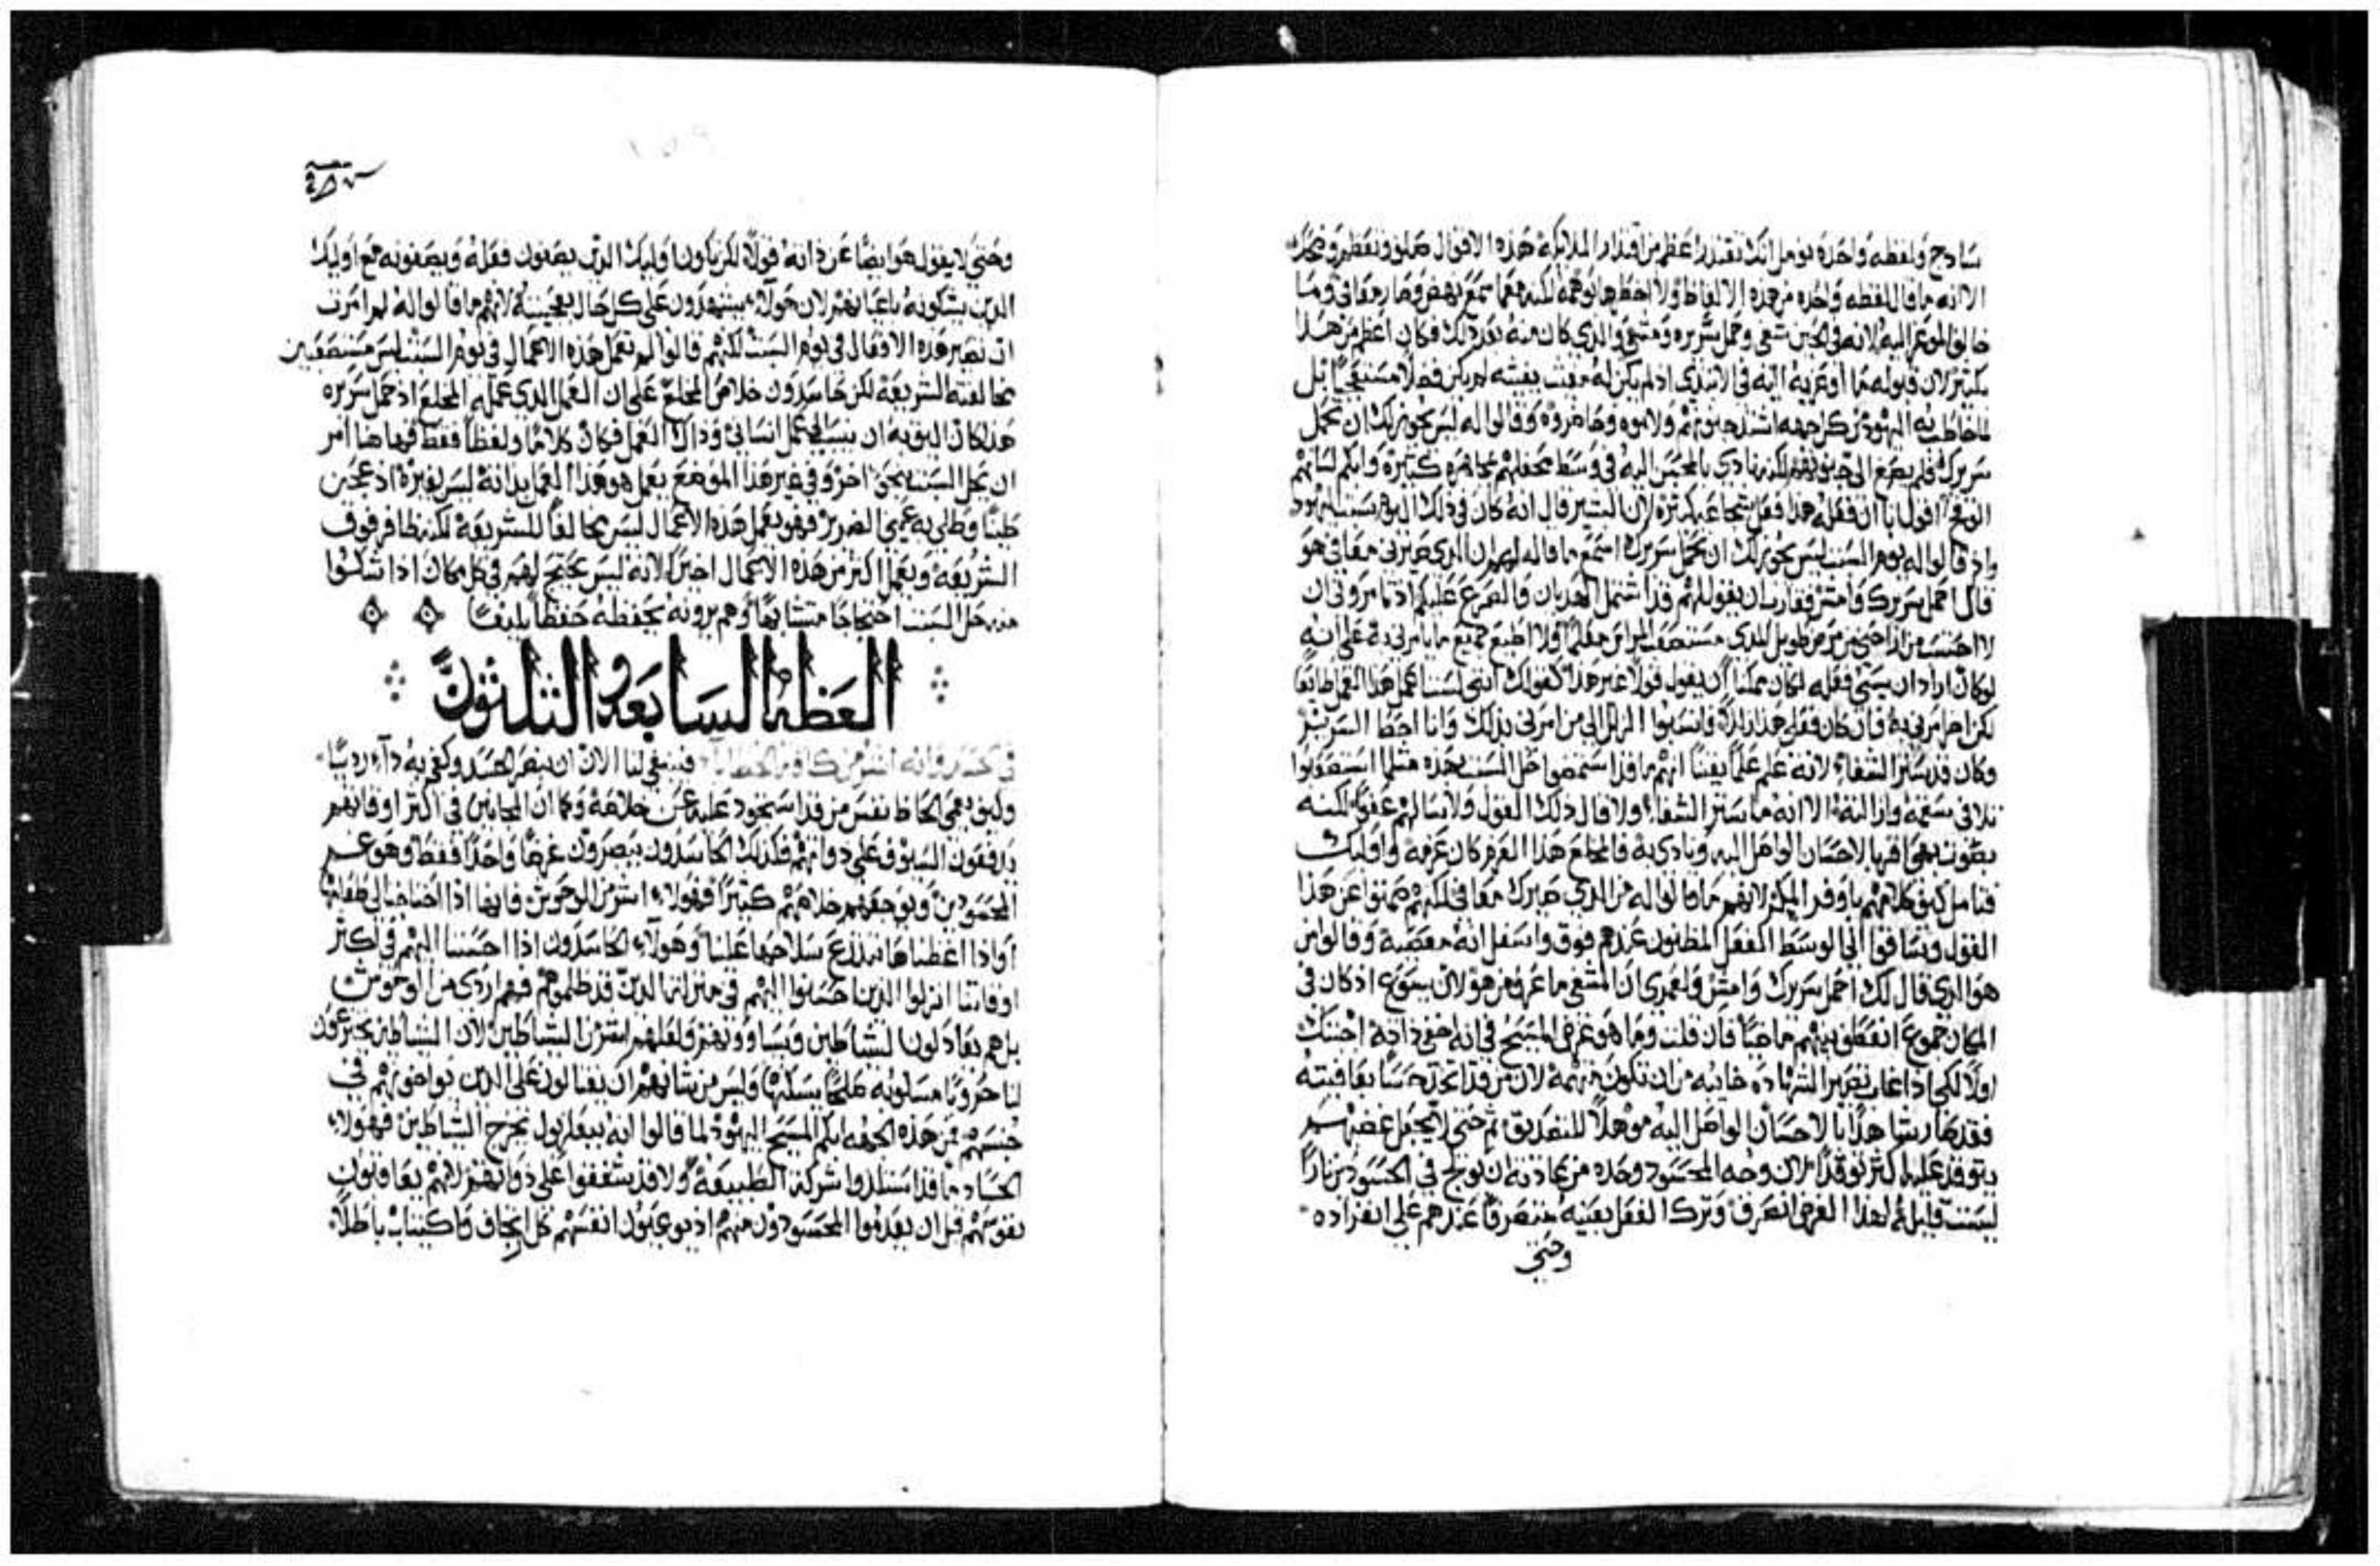 ساذج ولفظه واحده نومل انك تقتدر اعظم من اقتدار الملايكه هذه الاقوال صلف وتعظم
الا انه ما قال لفظه واحده من هذه الالفاظ ولا اخطرها توهمه لكنه معما سمع نهض وصار معافى وما
خالف الموعز اليه لانه في الحين شفي وحمل سريره ومشى والذي كان منه بعد ذلك فكان اعظم من هذا
بكثير لان قبوله ما اوعز به اليه في الابتدي اذ لم يكن له معنت يعنته لم يكن فضلا مستعجبا بل
لما خاطب به اليهود من كل جهه اشد جنونهم ولاموه وحاصروه وقالوا له ليس يجوز لك ان تحمل
سريرك فلم يصغ الى جنونهم لكنه نادى بالمحسن اليه في وسط محفلهم مجاهره كثيره وابكم لسانهم
الوقح اقول انا ان فعله هذا فعل شجاعه كثيره لان البشير قال انه كان في ذلك اليوم سبت اليهود
واذ قالوا له يوم السبت ليس يجوز لك ان تحمل سريرك اسمع ما قاله لهم ان الذي صيرني معافى هو
قال احمل سريرك وامش فقارب ان يقول لهم قد اشتمل الهذيان والصرع عليكم اذ تامروني ان
لا احتسب من اراحني من مرض طويل المدى مستصعب المراس معلما ولا اطيع جميع ما يامرني به على انه
لو كان اراد ان يسي فعله لكان ممكنا ان يقول قولا غير هذا كقولك انني لست اعمل هذا العمل طايعا
لكن اخر امرني به فان كان فعلي هذا زللا فانسبوا الزلل الى من امرني بذلك وانا احط السرير
وكان قد ستر الشفاء لانه علم علما يقينا انهم ما قد استمضوا حل السبت بحده مثلما استصعبوا
تلافى سقمه وازالته الا انه ما ستر الشفاء ولا قال ذلك القول ولا سالهم عفوا لكنه
بصوت بهي اقر بالاحسان الواصل اليه ونادى به فالمخلع هذا الغرض كان غرضه واوليك
فتامل كيف كلامهم باوفر المكر لانهم ما قالوا له من الذي صيرك معافى لكنهم صمتوا عن هذا
القول وساقوا الى الوسط الفعل المظنون عندهم فوق واسفل انه معصيه وقالوا من
هو الذي قال لك احمل سريرك وامش ولعمري ان المشفى ما عرفه من هو لان يسوع اذ كان في
المكان جموع انعطف بينهم خاضيا فان قلت وما هو غرض المسيح في انه اخفى ذاته اجبتك
اولا لكي اذا غاب تصير الشهاده خايبه من ان تكون متهمه لان من قد اتخذ حسا بعافيته
فقد صار شاهدا بالاحسان الواصل اليه موهلا للتصديق ثم حتى لا يجعل غضبهم
يتوقد عليه اكثر توقدا لان وجه المحسود وحده من عادته ان يولج في الحسود نارا
ليست قليله لهذا الغرض انصرف وترك الفعل بعينه متصرفا عندهم على انفراده
وحتى
وحتى لا يقول هو ايضا عن ذاته قولا لكن يكون اوليك الذين يصفون فعله ويصفونه مع اوليك
الذين يشكونه باعيانهم لان هولاء يشهدون على كل حال بعجيبته لانهم ما قالوا له لم امرت
ان تصير هذه الافعال في يوم السبت لكنهم قالوا لم تعمل هذه الاعمال في يوم السبت ليس مستصعبين
مخالفته الشريعه لكن حاسدون خلاص المخلع على ان العمل الذي عمله المخلع اذ حمل سريره
هذا كان اليق به ان ينسب الى عمل انساني وذاك العمل فكان كلاما ولفظا فقط فهاهنا امر
ان يحل السبت نحوا اخر وفي غير هذا الموضع يعمل هو هذا العمل بذاته ليس بغيره اذ عجن
طينا وطلى به عيني الضرير فهو يعمل هذه الاعمال ليس مخالفا للشريعه لكنه ظافر فوق
الشريعه ويعمل اكثر من هذه الاعمال اخيرا لانه ليس يحتج لهم في كل مكان اذا شكوا
منه حل السبت احتجاجا متشابها وهم يرونه يحفظه حفظا بليغا
العظه السابعه والثلثون
في الحسد وانه اشر من كافة الخطايا فينبغي لنا الان ان نبصر الحسد وكفى به داء رديا
وكيف يعمي الحاظ نفس من قد استحوذ عليه عن خلاصه وكما ان المجانين في اكثر اوقاتهم
يدفعون السيوف على ذواتهم فكذلك الحاسدون يبصرون غرضا واحدا فقط وهو غم
المحسودين ويوجعهم خلاصهم كثيرا فهولاء اشر من الوحوش فانها اذا احتاجنا الى طعامنا
او اذا اغظناها تتدرع سلاحها علينا وهولاء الحاسدون اذا احسنا اليهم في اكثر
اوقاتنا انزلوا الذين احسنوا اليهم في منزلة الذين قد ظلموهم فهم اردى من الوحوش
بل هم يعادلون الشياطين ويساوونهم ولعلهم اشر من الشياطين لان الشياطين يخترعون
لنا حروبا مسلوبه صلحا بسكنها وليس من شانهم ان يغتالون على الذين يواخونهم في
جنسهم فمن هذه الجهه ابكم المسيح اليهود لما قالوا انه ببعلزبول يخرج الشياطين فهولاء
الحساد ما قد استلذوا شركة الطبيعه ولا قد شغفوا على ذواتهم لانهم يعاقبون
نفوسهم قبل ان يعدموا المحسودون منهم اذ يوعبون انفسهم كل ارجاف واكتياب باطلا